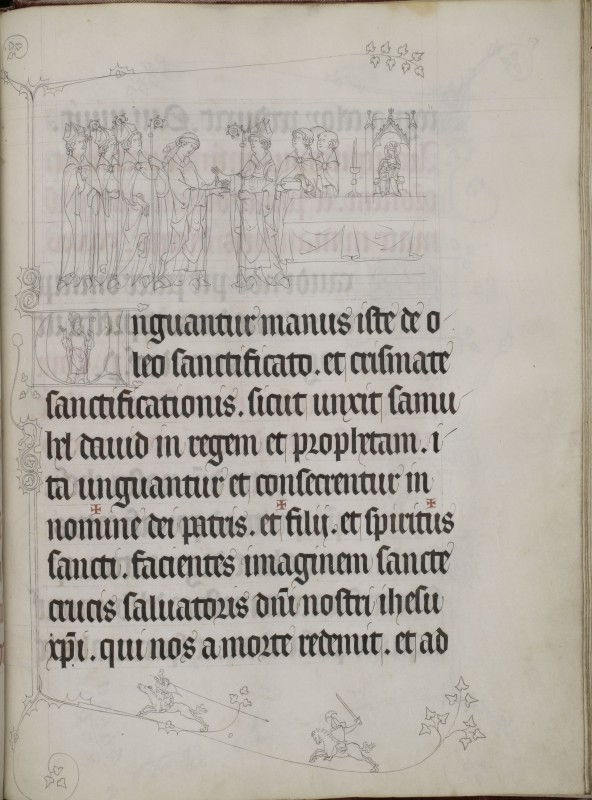 Unguantur manus iste de o
leo sanctificato. et crismate
sanctificationis. sicut unxit samu
hel dauid in regem et prophetam. i
ta unguantur et consecrentur in
no✠mine dei patris. et ✠ filij. et spiri✠tus
sancti. facientes imaginem sancte
crucis saluatoris dn̄i nostri ihesu
xp̄i. qui nos a morte redemit. et ad